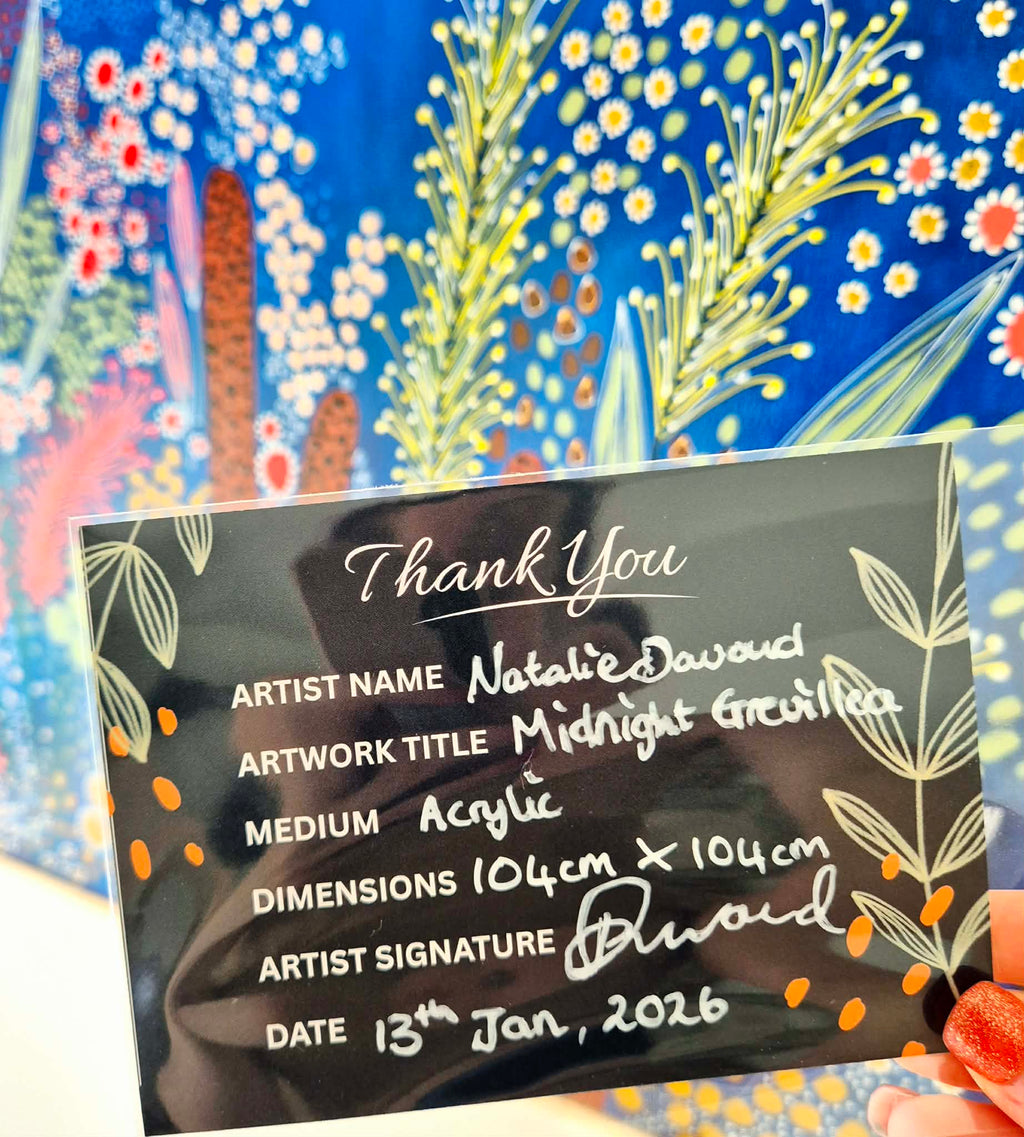 Thank You
ARTIST NAME Natalie Davoud
ARTWORK TITLE Midnight Grevillea
MEDIUM Acrylic
DIMENSIONS 104cm X 104cm
ARTIST SIGNATURE Davoud
DATE 13th Jan, 2026